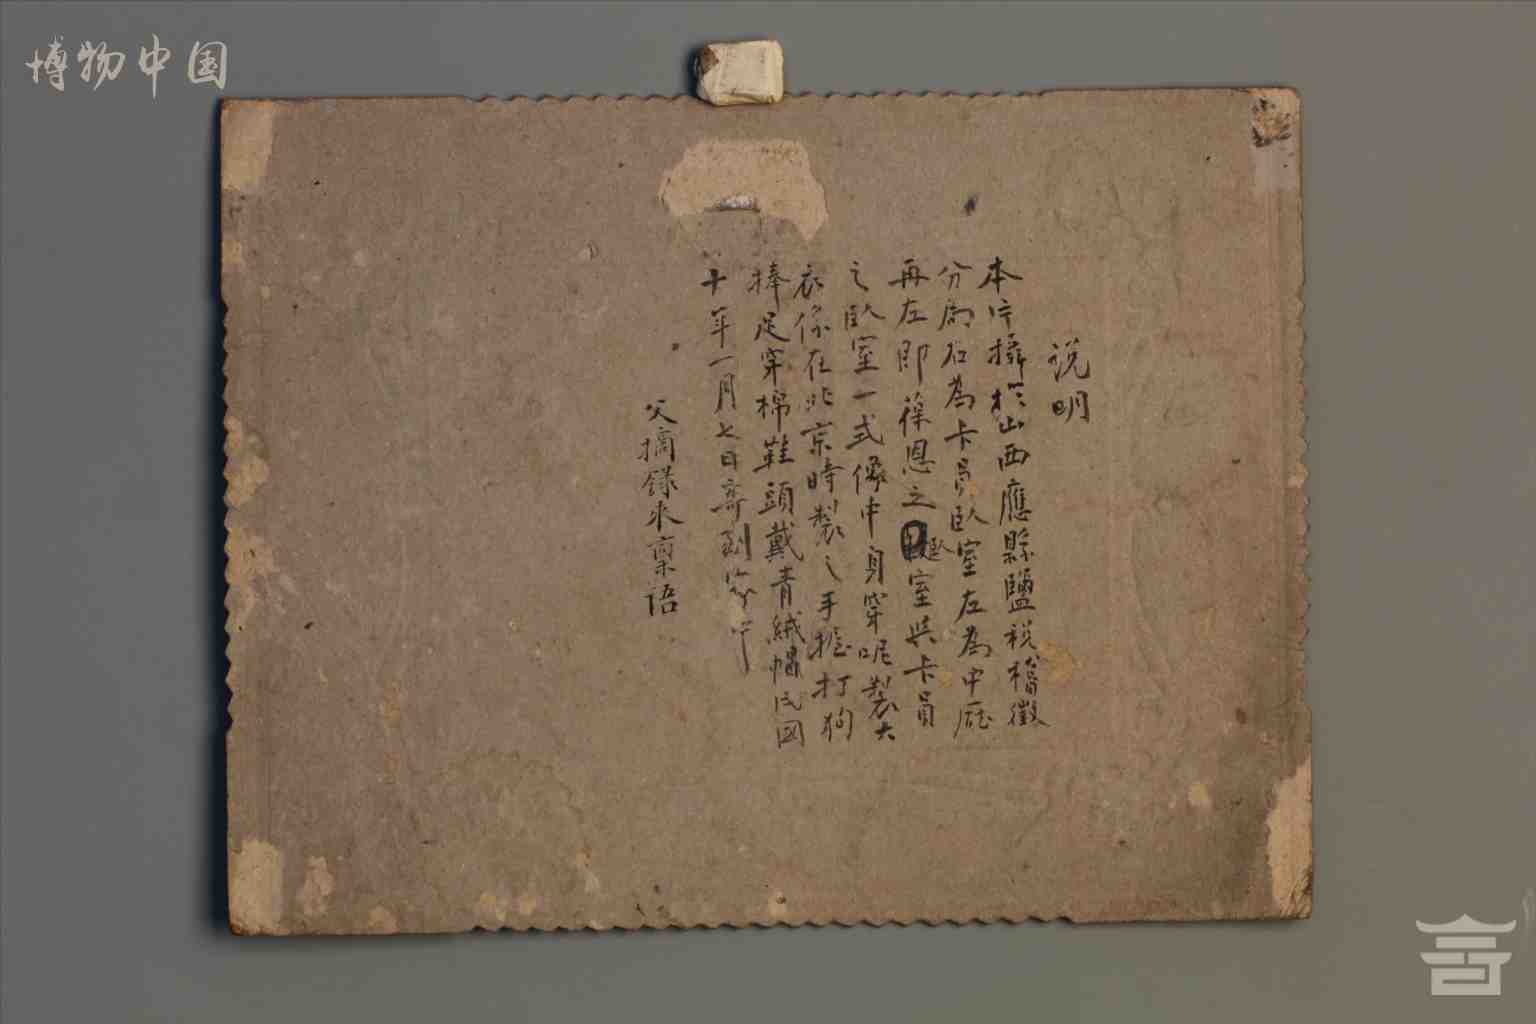 博物中国
说明
本片攝於山西應縣鹽税稽徵
分局右為卡員臥室左為中廳
再左即葆恩之臥室與卡員
之臥室一式像中身穿呢製大
衣係在北京時製之手握打狗
捧足穿棉鞋頭戴青絨帽民国
十年一月七日寄到家中
父摘錄来稟语